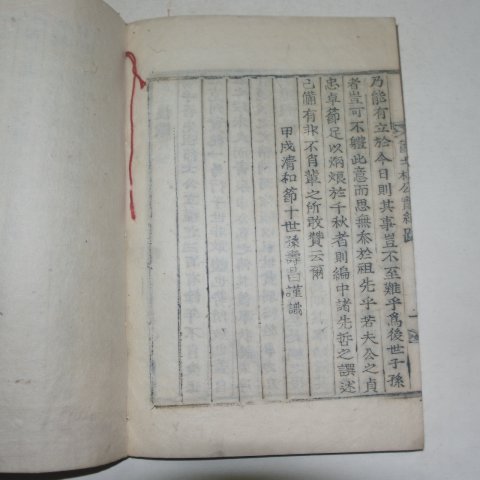 乃能有立於今日則其事豈不至難乎爲後世子孫
者豈可不軆此意而思無忝於祖先乎若夫公之貞
忠卓節足以炳烺於千秋者則編中諸先哲之譔述
已備有非不肖輩之所敢贊云爾
甲戌淸和節十世孫壽昌謹識